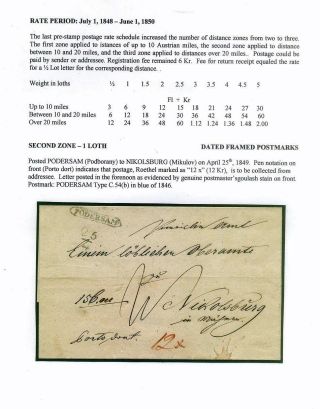 RATE PERIOD: July 1, 1848 – June 1, 1850
The last pre-stamp postage rate schedule increased the number of distance zones from two to three.
The first zone applied to istances of up to 10 Austrian miles, the second zone applied to distance
between 10 and 20 miles, and the third zone also applied to distances over 20 miles.. Postage could be
paid by sender or addressee. Registration fee remained 6 Kr. Fee for return receipt equaled the rate
for a ½ Lot letter for the corresponding distance. .
Weight in loths ½ 1 1.5 2 2.5 3 3.5 4 4.5 5
Fl + Kr
Up to 10 miles 3 6 9 12 15 18 21 24 27 30
Between 10 and 20 miles 6 12 18 24 30 36 42 48 54 60
Over 20 miles 12 24 36 48 60 1.12 1.24 1.36 1.48 2.00
SECOND ZONE – 1 LOTH DATED FRAMED POSTMARKS
Posted PODERSAM (Podborany) to NIKOLSBURG (Mikulov) on April 25th, 1849. Pen notation
on front (Porto dort) indicates that postage, Roethel marked as "12 x" (12 Kr), is to be collected from
addressee. Letter posted in the forenoon as evidenced by genuine postmaster'sgoulash stain on front.
Postmark: PODERSAM Type C.54(b) in blue of 1846.
PODERSAM
Einem löblichen Oberamte
zu
Nikolsburg
in Mähren.
Porto dort.
12x